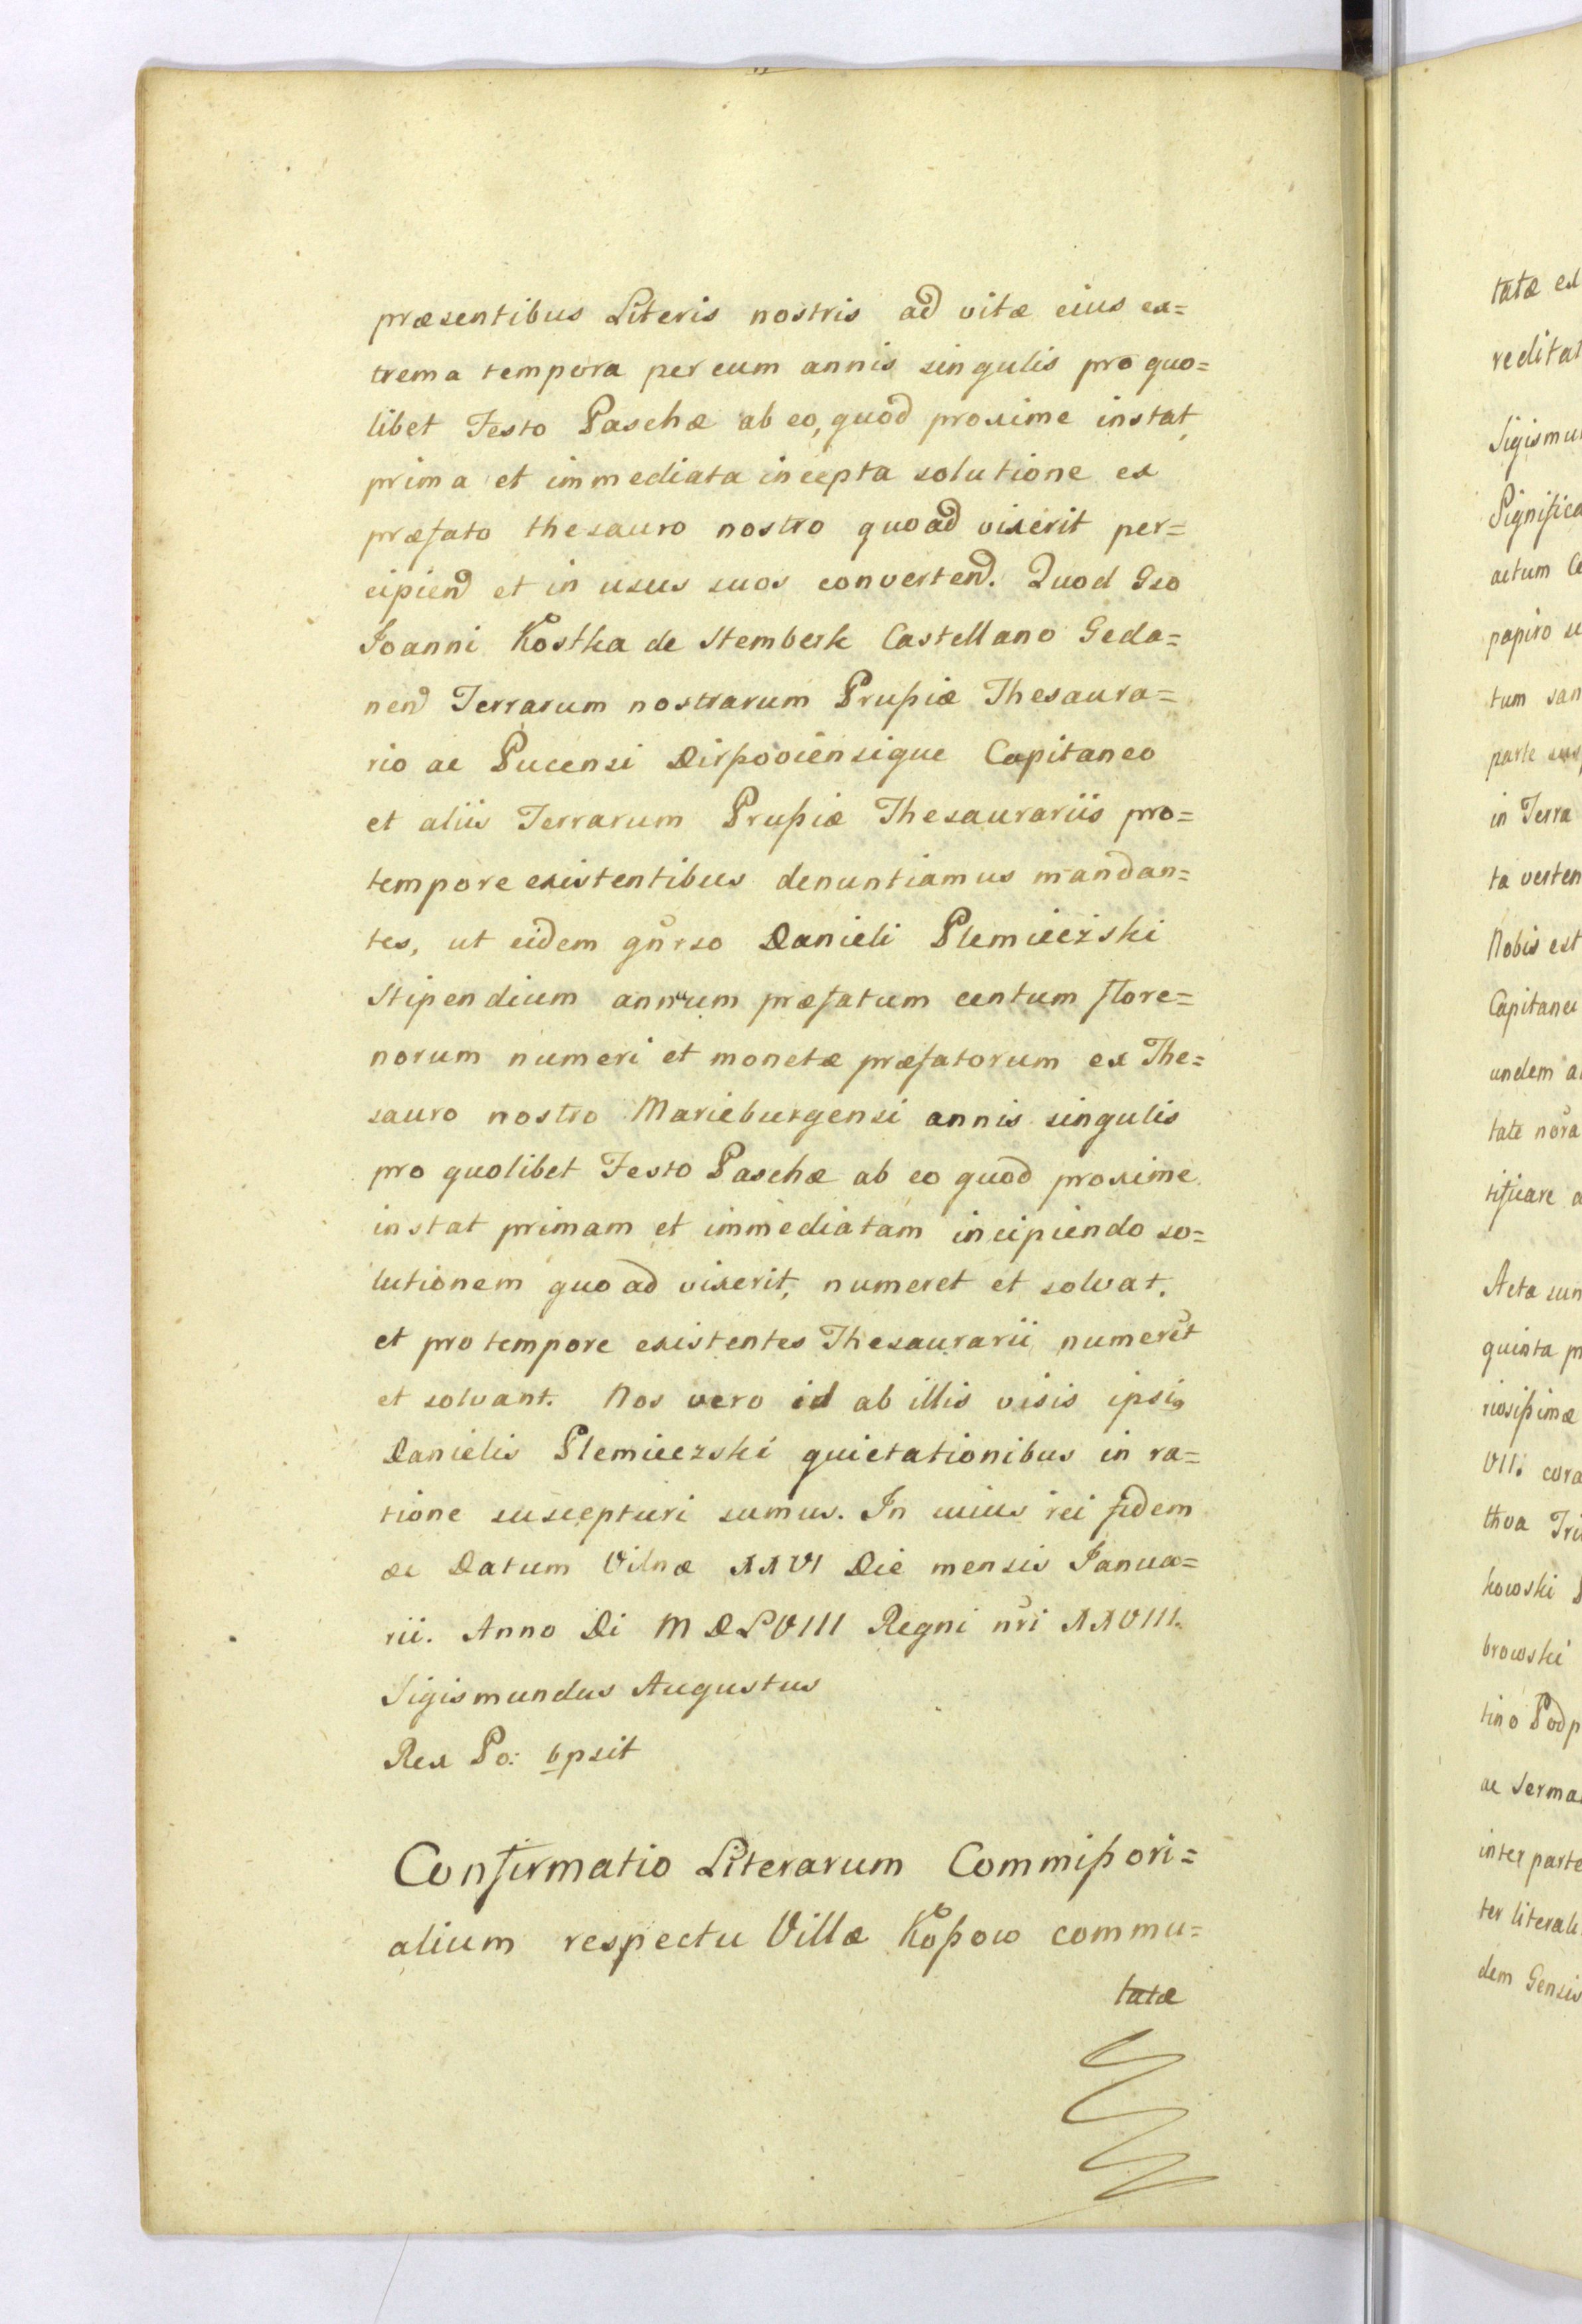 præsentibus Literis nostris ad vitæ eius ex=
trema tempora per eum annis singulis pro quo=
libet Festo Paschæ ab eo, quod proxime instat,
prima et immediata incepta solutione ex
præfato thesauro nostro quoad vixerit per=
cipiend et in usus suos convertend. Quod Gso
Joanni Kostka de Stemberk Castellano Geda=
nen Terrarum nostrarum Prußiæ Thesaura=
rio ac Pucensi Dirßoviensique Capitaneo
et aliis Terrarum Prußiæ Thesaurariis pro=
tempore existentibus denuntiamus mandan=
tes, ut eidem gnrso Danieli Plemieczski
Stipendium annuum præfatum centum flore=
norum numeri et monetæ præfatorum ex The=
sauro nostro Marieburgensi annis singulis
pro quolibet Festo Paschæ ab eo quod proxime
instat primam et immediatam incipiendo so=
lutionem quoad vixerit, numeret et solvat,
et pro tempore existentes Thesaurarii numerut
et solvant. Nos vero id ab illis visis ipsi9
Danielis Plemieczski quietationibus in ra=
tione suscepturi sumus. In cuius rei fidem
&c Datum Vilnæ XXVI Die mensis Janua=
rii. Anno Di MDLVIII Regni nri XXVIII.
Sigismundus Augustus
Rex Po: spsit
Confirmatio Literarum Commißori=
alium respectu Villæ Koßow commu=
tatæ
tatæ ex
reditat
Sigismu
Significa
actum
papiro
tum san
parte
in Terra
ta verten
Nobis est
Capitanei
undem a
tate nora
tificare a
Acta sun
quinta
riosißimæ
VII. cora
thva Tri
kowski
browski
tino Podp
ac Serma
inter parte
ter literali
dem Gensis